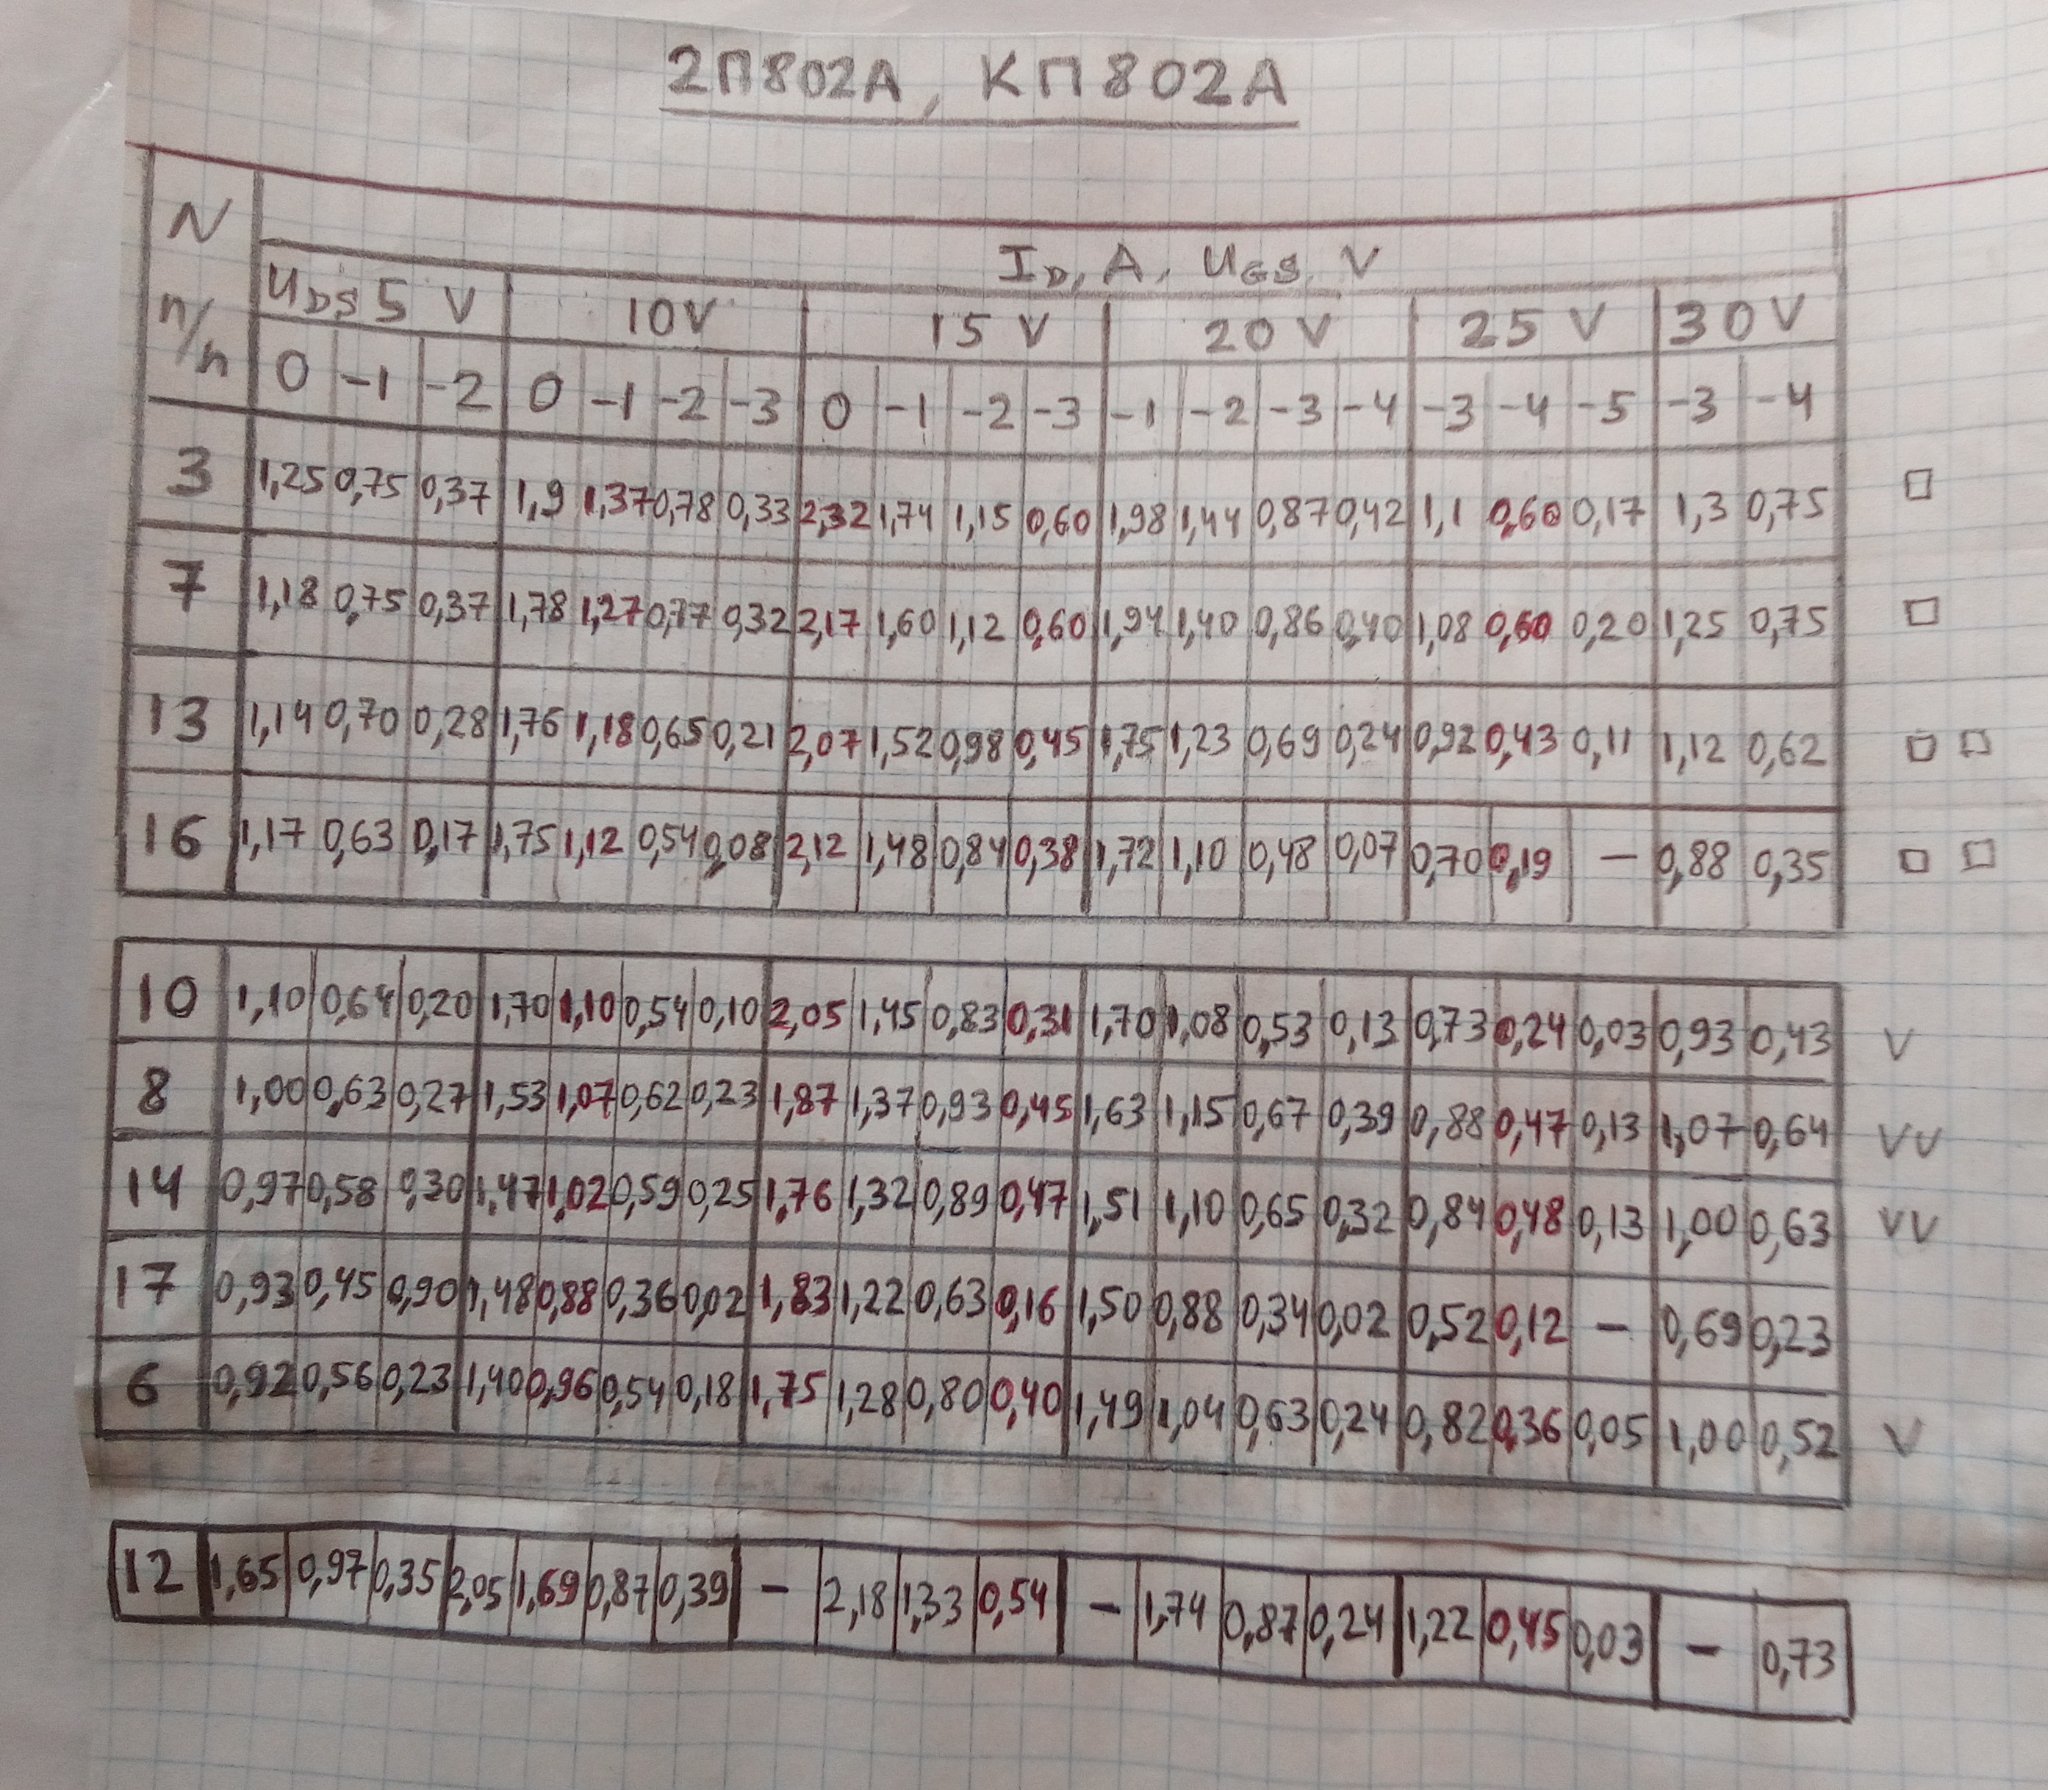 2П802А, КП802А
N n/n
I_D, A, U_GS, V
U_DS 5 V 10V 15 V 20 V 25 V 30V
0 -1 -2 0 -1 -2 -3 0 -1 -2 -3 -1 -2 -3 -4 -3 -4 -5 -3 -4
3 1,25 0,75 0,37 1,9 1,37 0,78 0,33 2,32 1,74 1,15 0,60 1,98 1,44 0,87 0,42 1,1 0,60 0,17 1,3 0,75 □
7 1,18 0,75 0,37 1,78 1,27 0,77 0,32 2,17 1,60 1,12 0,60 1,94 1,40 0,86 0,40 1,08 0,60 0,20 1,25 0,75 □
13 1,14 0,70 0,28 1,76 1,18 0,65 0,21 2,07 1,52 0,98 0,45 1,75 1,23 0,69 0,24 0,92 0,43 0,11 1,12 0,62 □ □
16 1,17 0,63 0,17 1,75 1,12 0,54 0,08 2,12 1,48 0,84 0,38 1,72 1,10 0,48 0,07 0,70 0,19 — 0,88 0,35 □ □
10 1,10 0,64 0,20 1,70 1,10 0,54 0,10 2,05 1,45 0,83 0,31 1,70 1,08 0,53 0,13 0,73 0,24 0,03 0,93 0,43 V
8 1,00 0,63 0,27 1,53 1,07 0,62 0,23 1,87 1,37 0,93 0,45 1,63 1,15 0,67 0,39 0,88 0,47 0,13 1,07 0,64 VV
14 0,97 0,58 0,30 1,47 1,02 0,59 0,25 1,76 1,32 0,89 0,47 1,51 1,10 0,65 0,32 0,84 0,48 0,13 1,00 0,63 VV
17 0,93 0,45 0,90 1,48 0,88 0,36 0,02 1,83 1,22 0,63 0,16 1,50 0,88 0,34 0,02 0,52 0,12 — 0,69 0,23
6 0,92 0,56 0,23 1,40 0,96 0,54 0,18 1,75 1,28 0,80 0,40 1,49 1,04 0,63 0,24 0,82 0,36 0,05 1,00 0,52 V
12 1,65 0,97 0,35 2,05 1,69 0,87 0,39 — 2,18 1,33 0,54 — 1,74 0,87 0,24 1,22 0,45 0,03 — 0,73